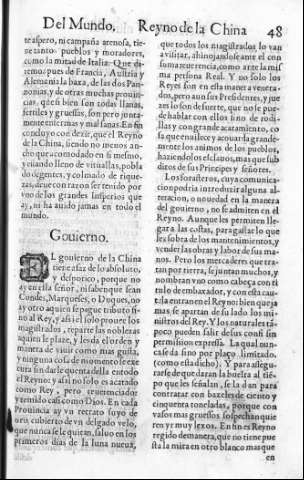 Del Mundo, Reyno de la China 48
te aspero, ni campaña arenosa, tie-
ne tantos pueblos y moradores,
como la mitad de Italia. Que di-
remos pues de Francia, Austria y
Alemania la baxa, de las dos Pan-
nonias, y de otras muchas prouin-
cias, que si bien son todas llanas,
fertiles y gruessas, son pero junta-
mente enfermas y mal sanas. En fin
concluyo con dezir, que el Reyno
de la China, siendo no menos an-
cho que acomodado en si mesmo,
y estando lleno de vituallas, pobla
do de gentes, y colmado de rique-
zas, deue con razon ser tenido por
vno de los grandes Imperios que
ay, ni ha auido jamas en todo el
mundo.
Gouierno.
EL gouierno de la China
tiene assaz de lo absoluto,
y despotico, porque no
ay en ella señor, ni saben que sean
Condes, Marqueses, o Duques, no
ay otro aquien se pague tributo si-
no al Rey, y assi el solo prouee los
magistrados, reparte las noblezas
aquien le plaze, y les da el orden y
manera de viuir como mas gusta,
y ninguna cosa de momento se exe
cuta sin darle quenta della en todo
el Reyno: y assi no solo es acatado
como Rey, pero reuerenciado
y temido casi como Dios. En cada
Prouincia ay vn retrato suyo de
oro, cubierto de vn delgado velo,
que nunca se le quitan, saluo en los
primeros dias de la luna nueua,
que todos los magistrados lo van
a visitar, ahinojandose ante el con
suma reuerencia, como ante la mis
ma persona Real. Y no solo los
Reyes son en esta manera venera-
dos, pero aun sus Presidentes, y jue
zes lo son de suerte, que no se pue-
de hablar con ellos sino de rodi-
llas y con grande acatamiento, co
sa que enuilece y acouarda grande-
mente los animos de los pueblos,
haziendolos esclauos, mas que sub
ditos de sus Principes y señores.
Los forasteros, cuya comunica-
cion podria introduzir alguna al-
teracion, o nouedad en la manera
del gouierno, no se admiten en el
Reyno. Aunque les permiten lle-
gar a las costas, para gastar lo que
les sobra de los mantenimientos, y
vender las obras y labor de sus ma-
nos. Pero los mercaderes que tra-
tan por tierra, se juntan muchos, y
nombran vno como cabeça con ti
tulo de embaxador, y con esta cau-
tela entran en el Reyno: bien que ja
mas, se apartan de su lado los mi-
nistros del Rey. Y los naturales tã-
poco pueden salir de sus confi sin
permission expressa. La qual nun-
ca se da sino por plaço limitado.
(como esta dicho). Y para assegu-
rarse de que daran la buelta al tiẽ-
po que les señalan, se la dan para
contratar con baxeles de ciento y
cinquenta toneladas, porque con
vasos mas gruessos sospechan quie
ren yr muy lexos. En fin es Reyno
regido demanera, que no tiene pue
sta la mira en otro blanco mas que
en